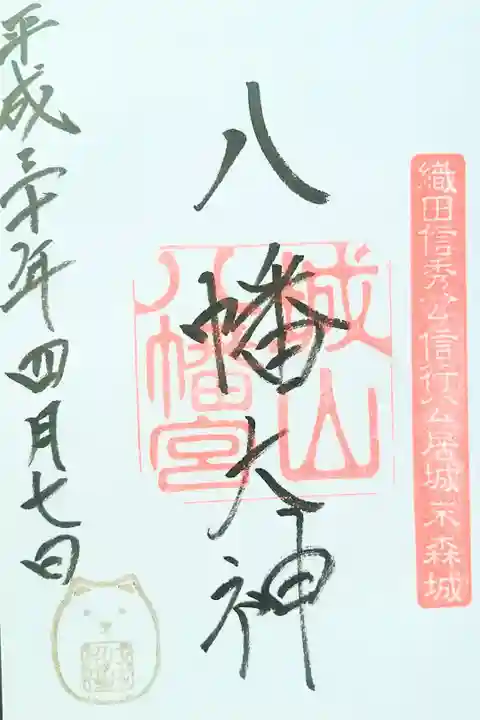 織田信秀公信行公居城末森城
八幡大神
城山
八幡宮
平成三十年四月七日